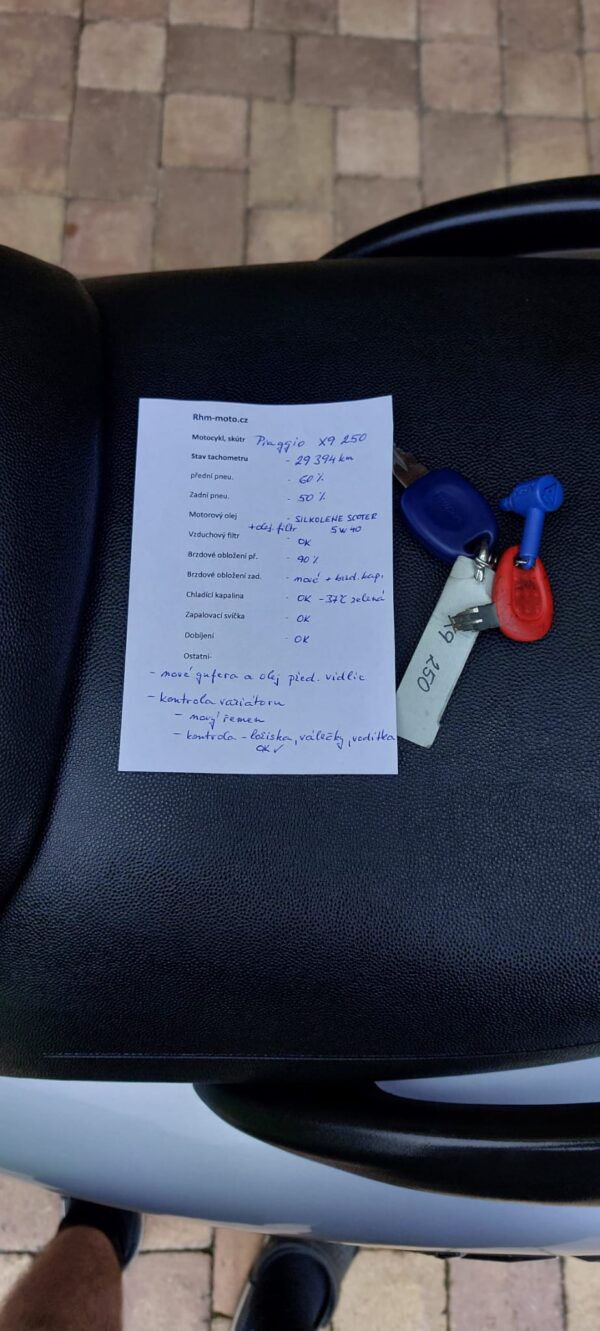 Rhm-moto.cz
Motocykl, skútr Piaggio X9 250
Stav tachometru - 29 394 km
přední pneu. - 60 %
Zadní pneu. - 50 %
Motorový olej - SILKOLENE SCOTER
+ olej. filtr 5W40
Vzduchový filtr - OK
Brzdové obložení př. - 90 %
Brzdové obložení zad. - nové + brzd. kap.
Chladící kapalina - OK -37°C zelená
Zapalovací svíčka - OK
Dobíjení - OK
Ostatní-
- nové gufera a olej před. vidlic
- kontrola variátoru
- nový řemen
- kontrola - ložiska, válečky, vodítka
OK ✓
X9 250